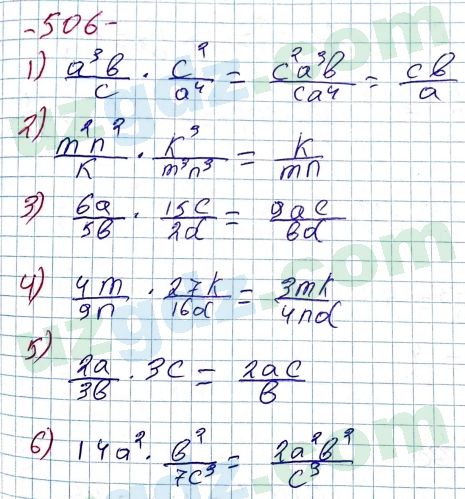 -506-
1) a³b/c · c²/a⁴ = c²a³b/ca⁴ = cb/a
2) m²n²/k · k³/m³n³ = k/mn
3) 6a/5b · 15c/2d = 9ac/bd
4) 4m/9n · 27k/16d = 3mk/4nd
5) 2a/3b · 3c = 2ac/b
6) 14a² · b²/7c³ = 2a²b²/c³
uzgdz.com